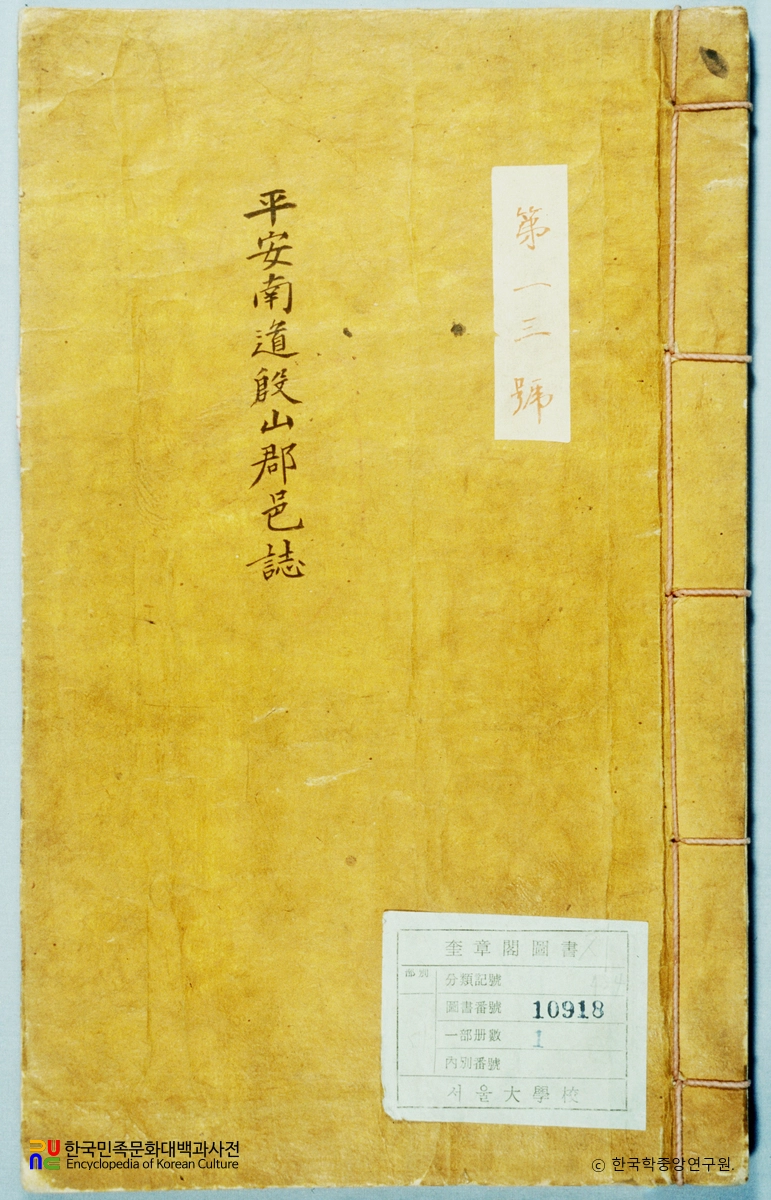 第一三號
平安南道殷山郡邑誌
奎章閣圖書
部別
分類記號
圖書番號 10918
一部册數 1
內別番號
서울大學校
한국민족문화대백과사전
Encyclopedia of Korean Culture
© 한국학중앙연구원